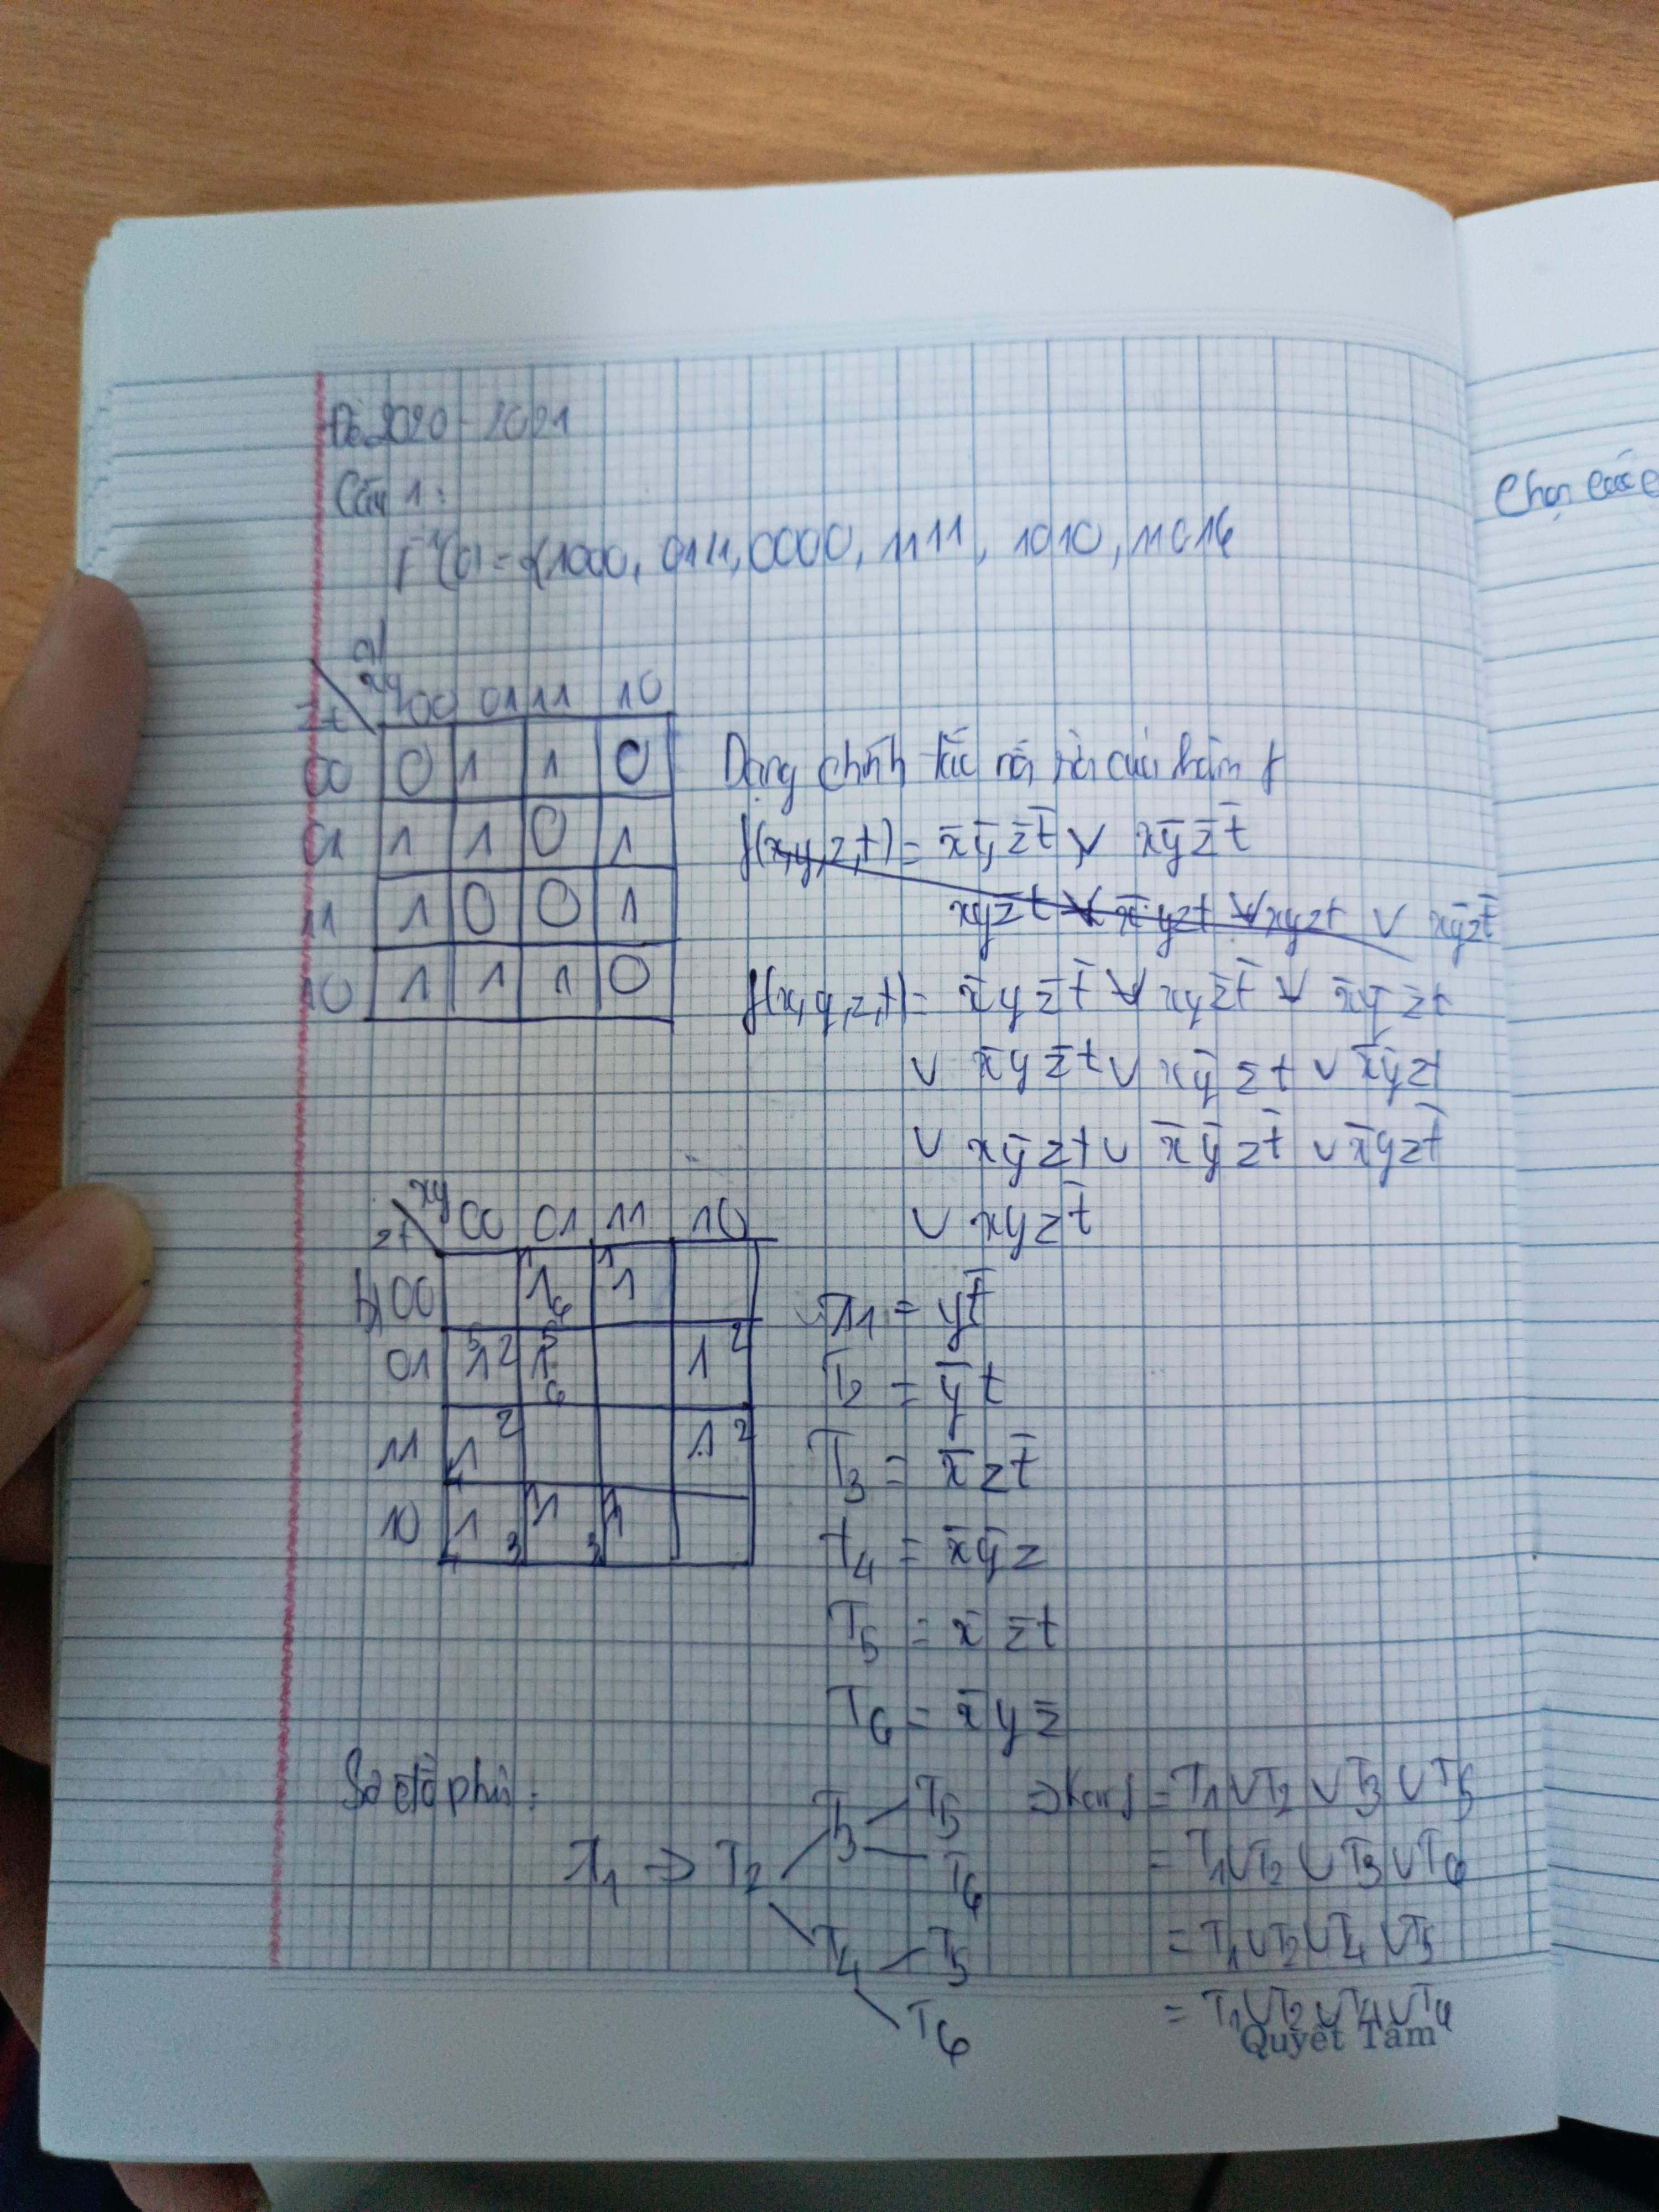 Đề 2020 - 2021
Câu 1:
F⁻¹(0) = {1000, 0111, 0000, 1111, 1010, 1101}
a)
xy 00 01 11 10
zt
00 0 1 1 0
01 1 1 0 1
11 1 0 0 1
10 1 1 1 0
Dạng chính tắc nối rời của hàm f
f(x,y,z,t) = x̄ȳz̄t̄ ∨ xȳz̄t̄
xyz̄t ∨ x̄yzt ∨ xyzt ∨ xȳzt̄
f(x,y,z,t) = x̄yz̄t̄ ∨ xyz̄t̄ ∨ x̄ȳz̄t
∨ x̄yz̄t ∨ xȳz̄t ∨ x̄ȳzt
∨ xȳzt ∨ x̄ȳzt̄ ∨ x̄yzt̄
∨ xyzt̄
b)
xy 00 01 11 10
zt
00 1 1 6 1 1
01 5 1 2 1 5 6 1 2
11 1 2 4 1 2
10 1 4 3 1 1 3 1 1
T1 = yt̄
T2 = ȳt
T3 = x̄zt̄
T4 = x̄ȳz
T5 = x̄z̄t
T6 = x̄yz̄
Sơ đồ phủ:
T1 → T2
T3 T5
T6
T4 T5
T6
⇒ Kar f = T1 ∨ T2 ∨ T3 ∨ T5
= T1 ∨ T2 ∨ T3 ∨ T6
= T1 ∨ T2 ∨ T4 ∨ T5
= T1 ∨ T2 ∨ T4 ∨ T6
Quyết Tâm
Chọn các